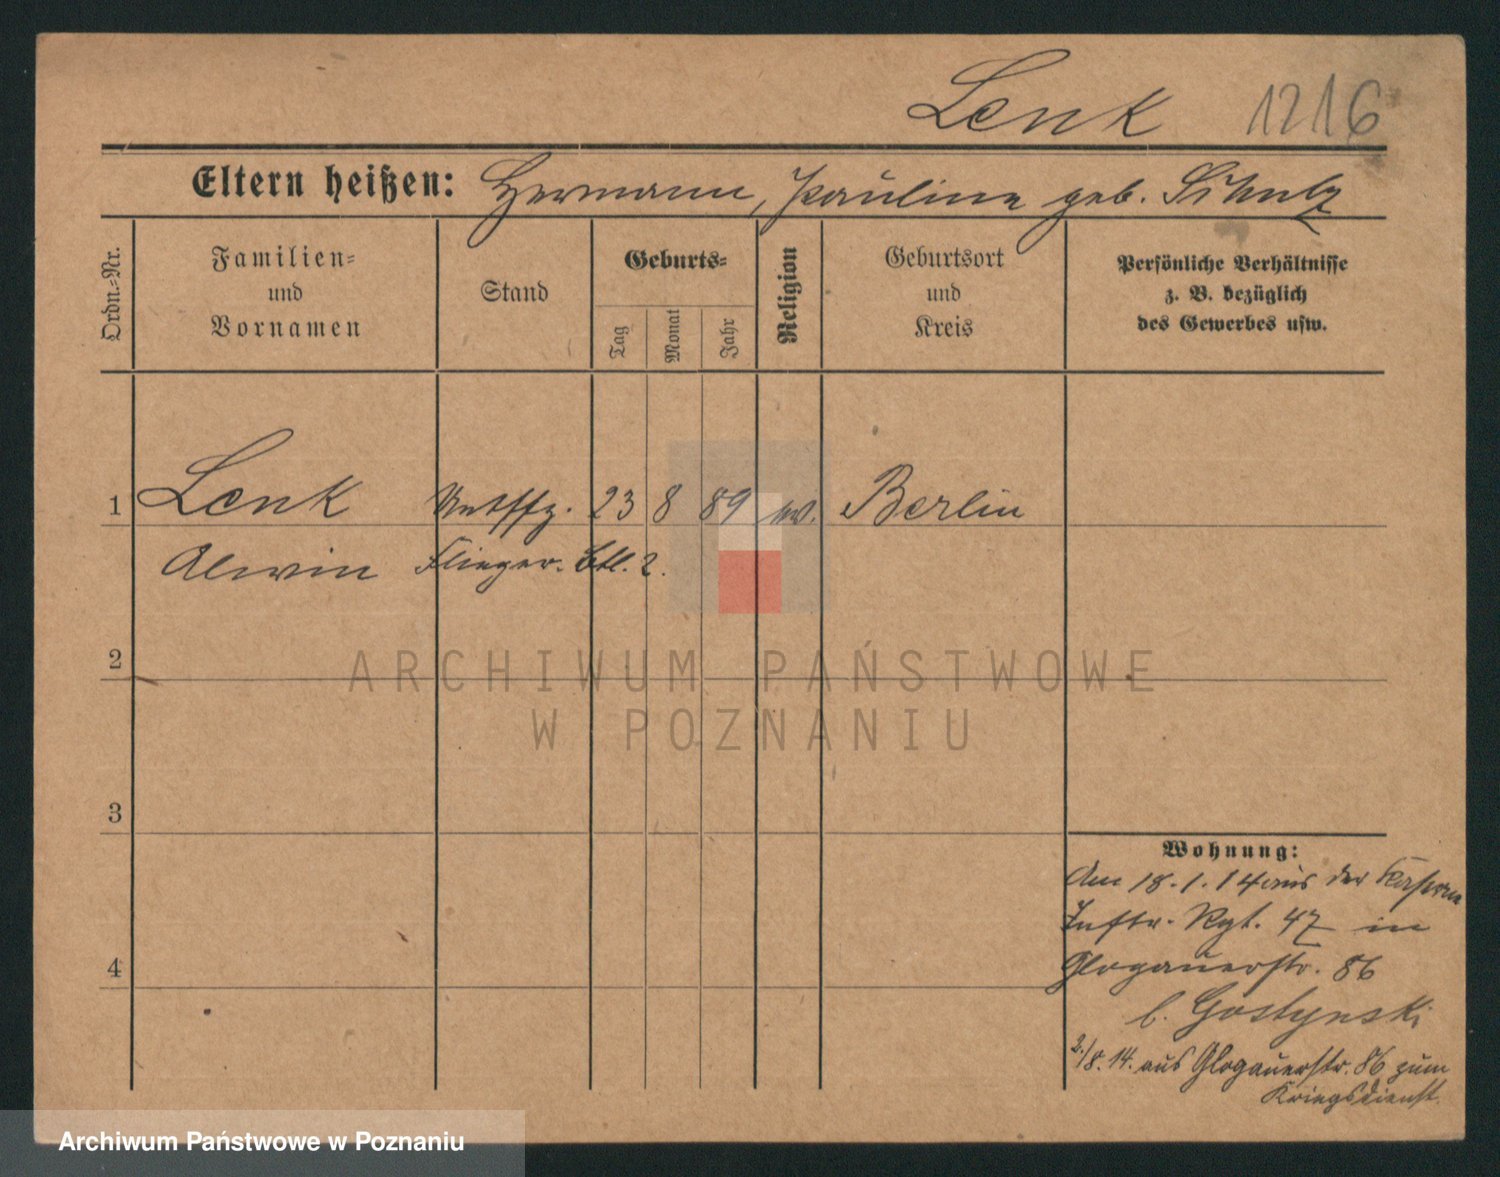 Lenk 1216
Eltern heißen: Hermann, Pauline geb. Schulz
Ordn.-Nr.
Familien-
und
Vornamen
Stand
Geburts-
Tag
Monat
Jahr
Religion
Geburtsort
und
Kreis
Persönliche Verhältnisse
z. B. bezüglich
des Gewerbes usw.
1 Lenk Untffz. 23 8 89 ev. Berlin
Alwin Flieger. Btl. 2.
2
3
4
Wohnung:
Am 18.1.14 aus der Kaserne
Inftr. Rgt. 47 in
Glogauerstr. 86
b. Gostynski
2./8.14. aus Glogauerstr. 86 zum
Kriegsdienst.
ARCHIWUM PAŃSTWOWE
W POZNANIU
Archiwum Państwowe w Poznaniu